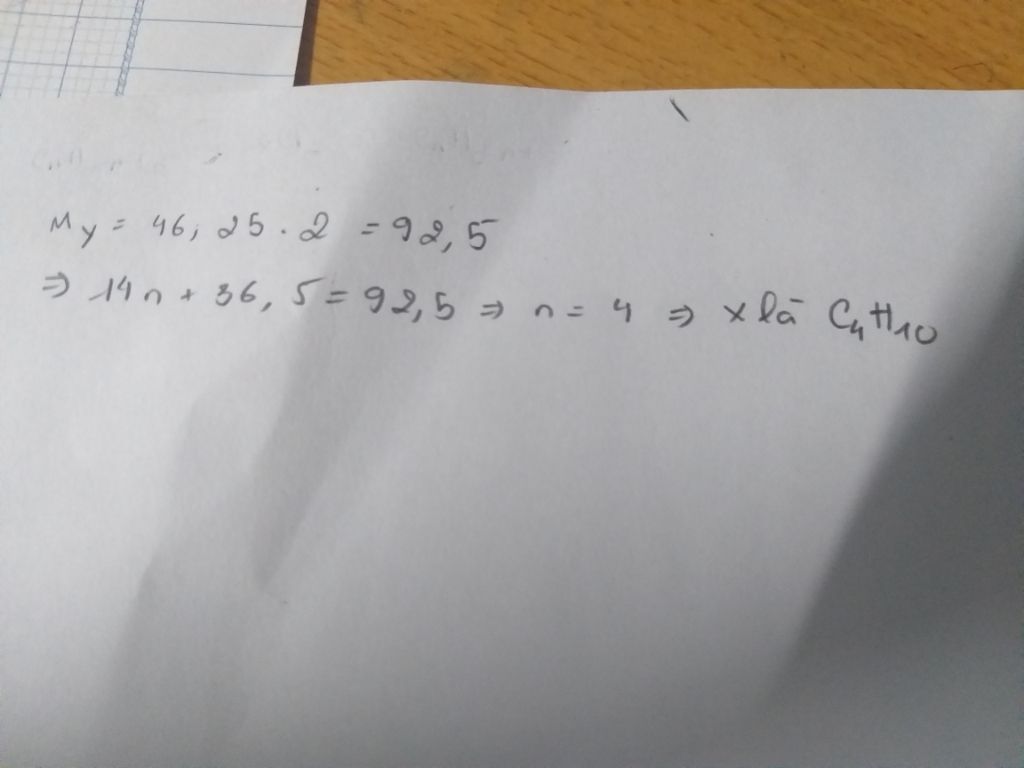 My = 46, 25 . 2 = 92, 5
⇒ 14n + 36, 5 = 92, 5 ⇒ n = 4 ⇒ x là C₄H₁₀